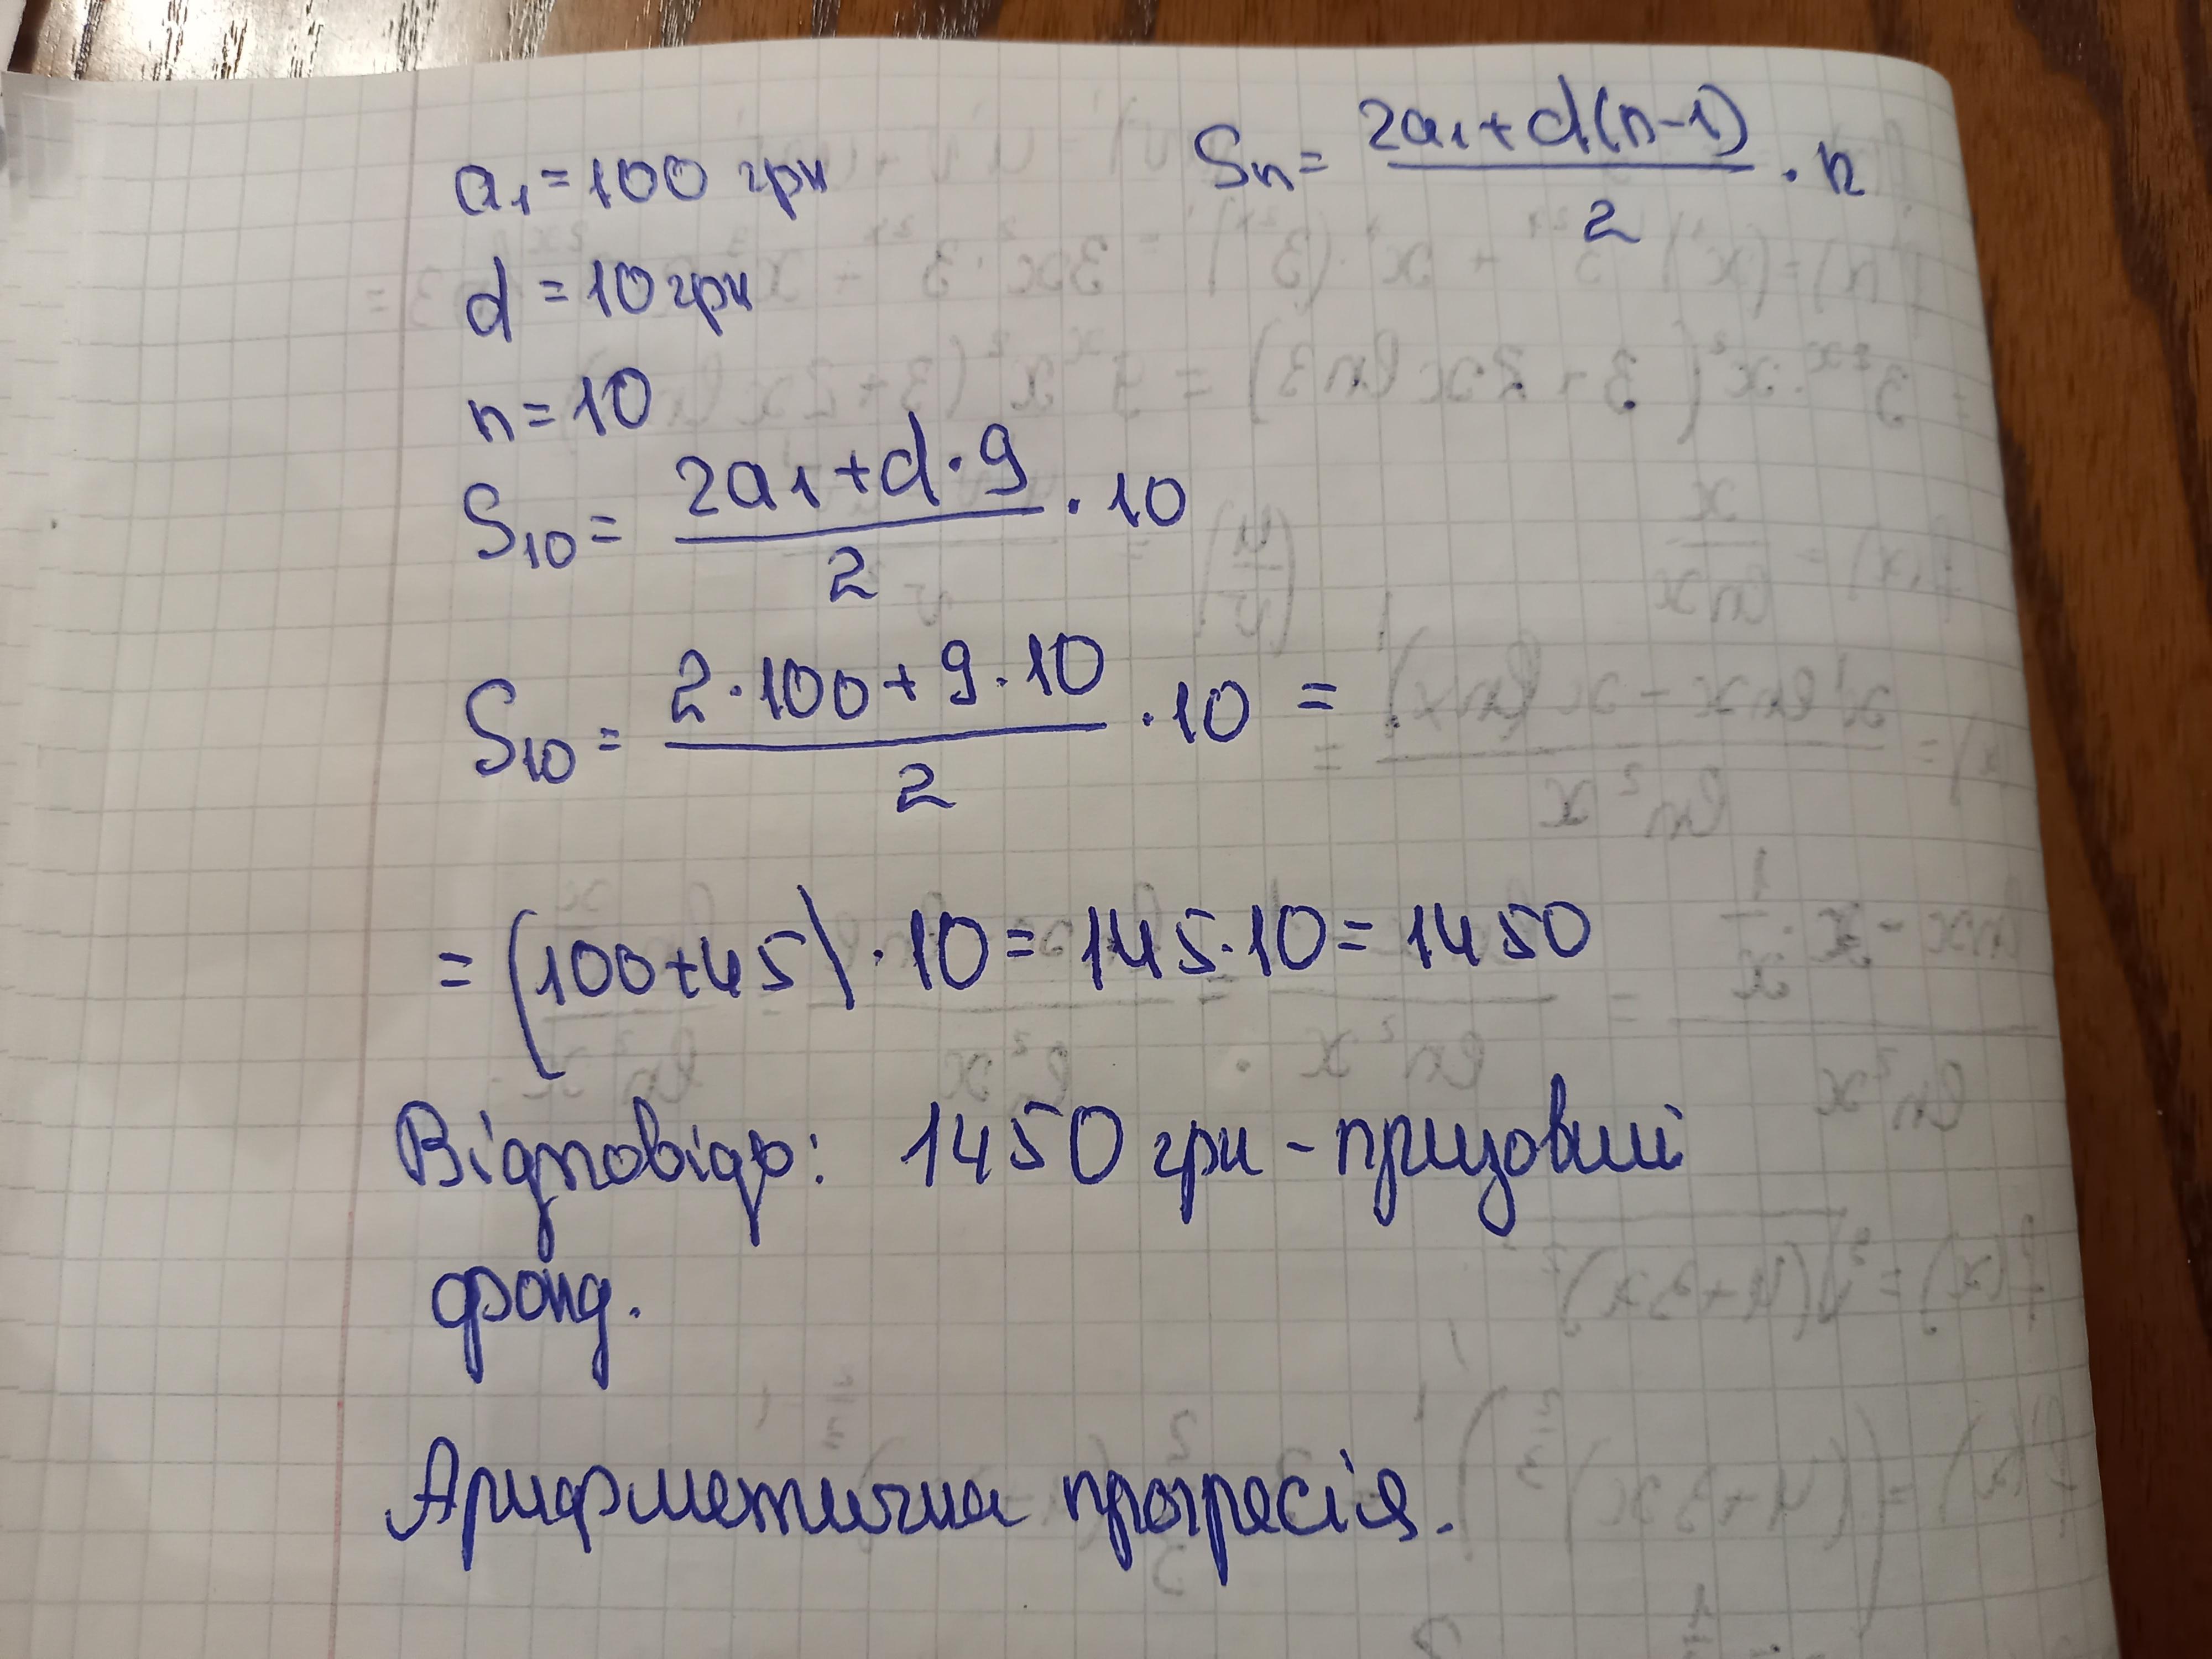 a₁ = 100 грн
Sₙ = (2a₁ + d(n-1))/2 · n
d = 10 грн
n = 10
S₁₀ = (2a₁ + d · 9)/2 · 10
S₁₀ = (2 · 100 + 9 · 10)/2 · 10 =
= (100 + 45) · 10 = 145 · 10 = 1450
Відповідь: 1450 грн - призовий
фонд.
Арифметична прогресія.